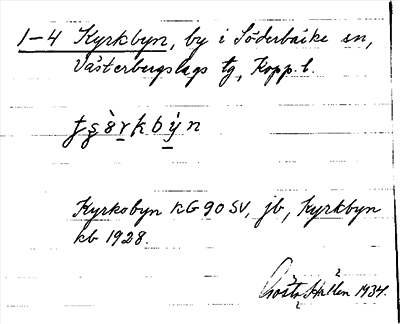 1-4 Kyrkbyn, by i Söderbärke sn,
Västerbergslags tg, Kopp. l.
Kyrkobyn KG 90 SV, jb, Kyrkbyn
kb 1928.
Gösta Hallén 1934.